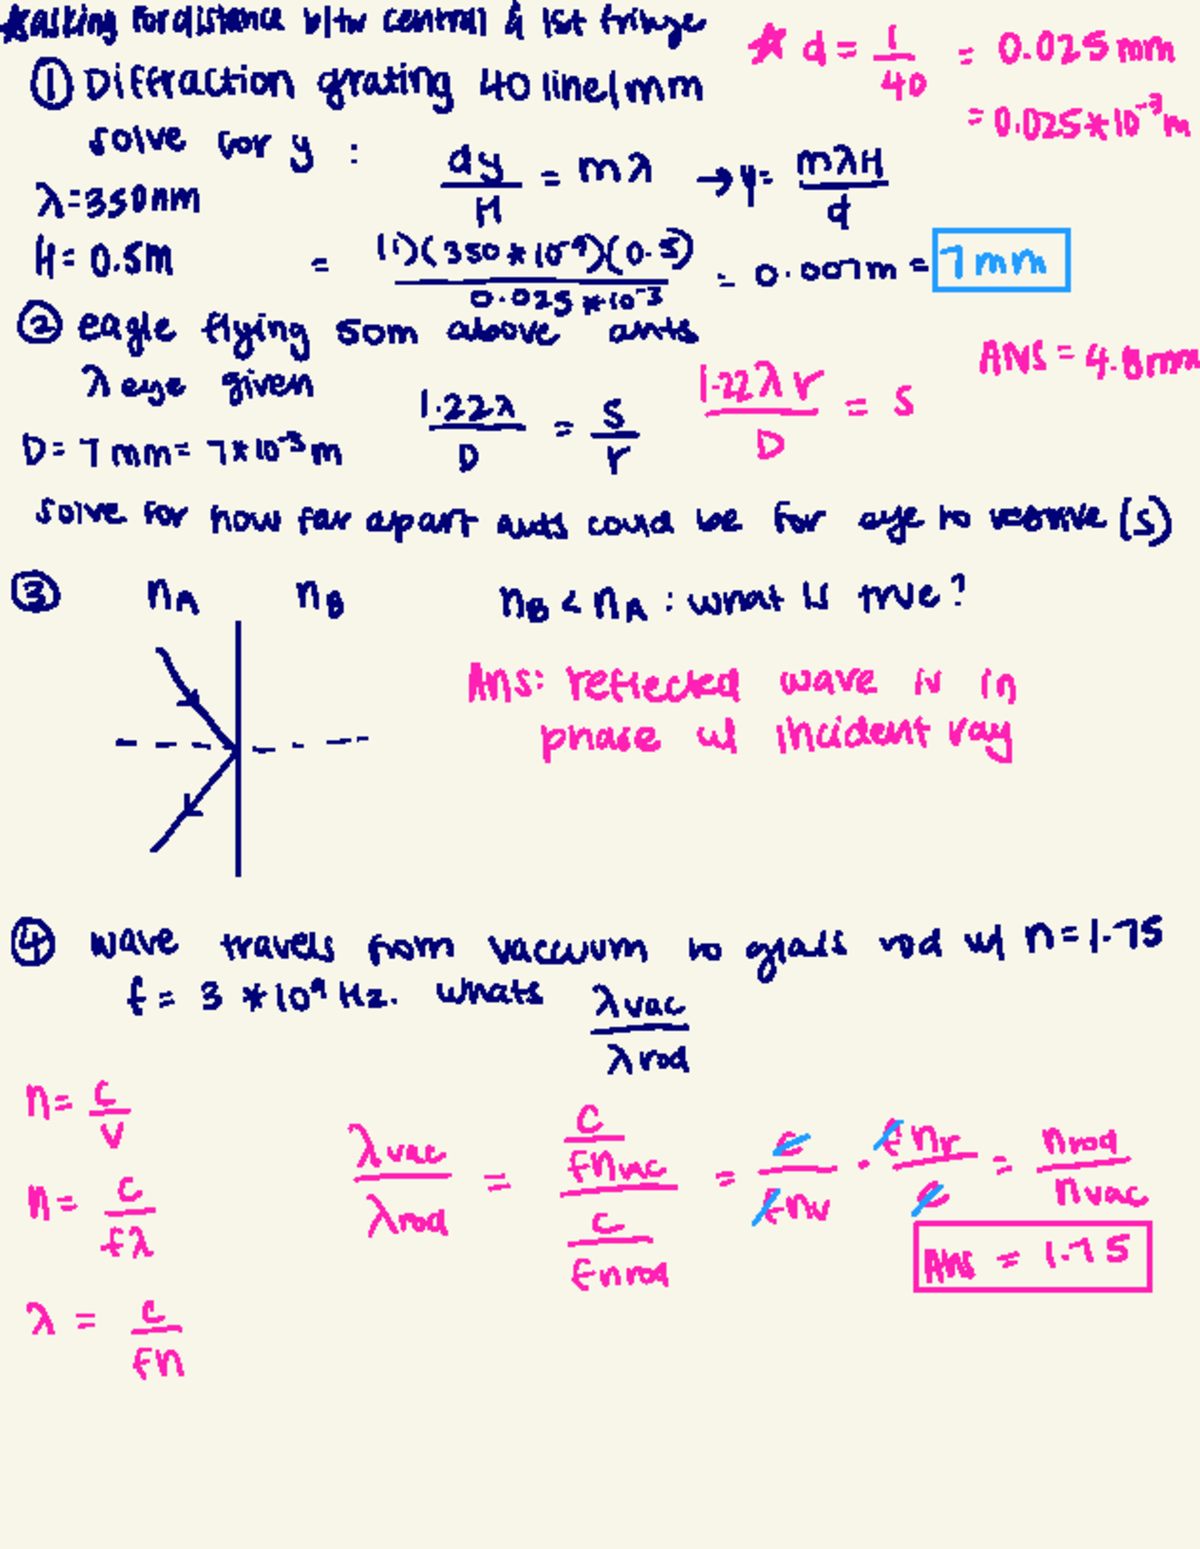 *asking for distance b/tw central & 1st fringe
① Diffraction grating 40 line/mm
* d = 1/40 = 0.025 mm
= 0.025*10⁻³m
solve for y :
dy/H = mλ → y = mλH/d
λ=350nm
H = 0.5m
= (1)(350*10⁻⁹)(0.5)/0.025*10⁻³ = 0.007m = 7mm
② eagle flying 50m above ants
ANS = 4.8mm
λ eye given
1.22λ/D = s/r
1.22λr/D = s
D = 7mm = 7*10⁻³m
solve for how far apart ants could be for eye to resolve (s)
③ nA nB
nB < nA : what is true?
Ans: reflected wave is in
phase w/ incident ray
④ wave travels from vaccuum to glass rod w/ n=1.75
f = 3 *10⁹ Hz. whats λvac/λrod
n = c/v
n = c/fλ
λ = c/fn
λvac/λrod = c/fnvac / c/fnrod = c/fnv · fnr/c = nrod/nvac
Ans = 1.75